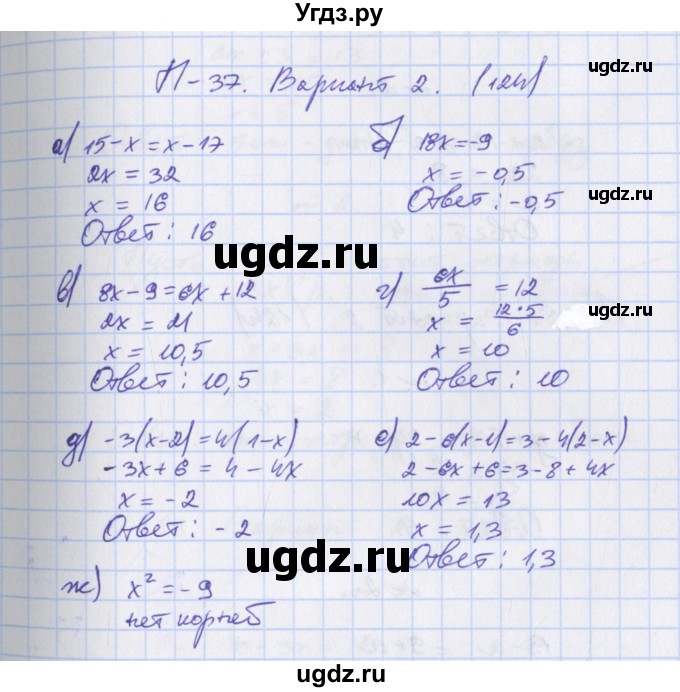 Угдз.ру
П-37. Вариант 2. (124)
ugdz.ru
а) 15-x=x-17
2x = 32
x = 16
Ответ: 16
б) 18x=-9
x = -0,5
Ответ: -0,5
ugdz.ru
ugdz.ru
в) 8x-9=6x+12
2x = 21
x = 10,5
Ответ: 10,5
г) 6x/5 = 12
x = 12·5/6
x = 10
Ответ: 10
ugdz.ru
ugdz.ru
д) -3(x-2)=4(1-x)
-3x+6 = 4-4x
x = -2
Ответ: -2
е) 2-6(x-1)=3-4(2-x)
2-6x+6=3-8+4x
10x = 13
x = 1,3
Ответ: 1,3
ugdz.ru
ugdz.ru
ж) x² = -9
нет корней
ugdz.ru
ugdz.ru